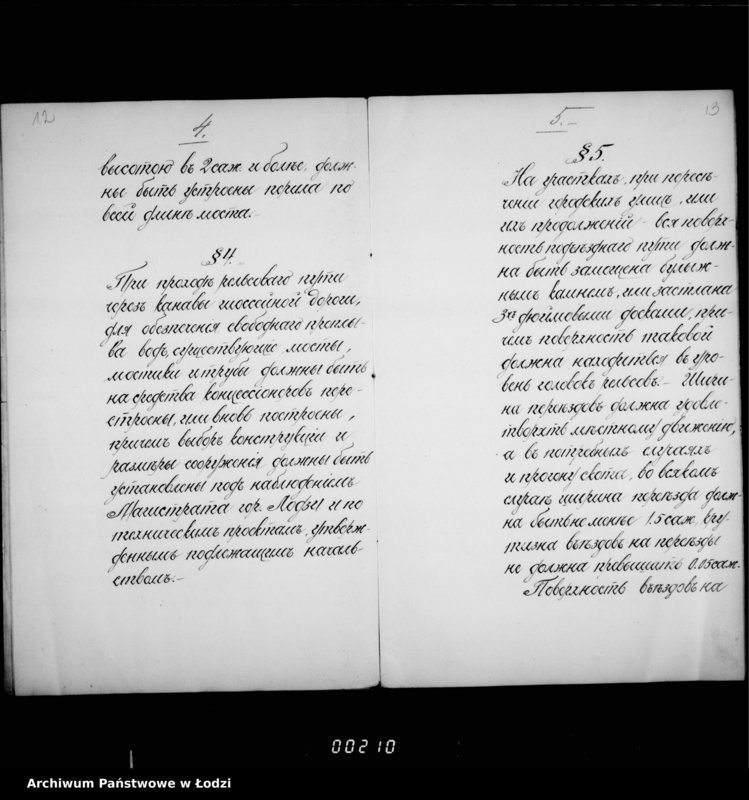 12
4.
высотою въ 2 саж. и болѣе, долж-
ны быть устроены перила по
всей длинѣ моста.-
§ 4.
При проходѣ рельсоваго пути
черезъ канавы шоссейной дороги,
для обезпеченія свободнаго проплы-
ва воды, существующіе мосты,
мостики и трубы должны быть
на средства концессіонеровъ пере-
строены, или вновь построены,
причемъ выборъ конструкціи и
размѣры сооруженія должны быть
установлены подъ наблюденіемъ
Магистрата гор. Лодзи и по
техническимъ проектамъ, утверж-
деннымъ подлежащимъ началь-
ствомъ.-
13
5.-
§ 5.
На участкахъ, при пересѣ-
ченіи городскихъ улицъ, или
ихъ продолженій - вся поверх-
ность подъѣзднаго пути долж-
на быть замощена булыж-
нымъ камнемъ, или застлана
3хъ дюймовыми досками, при-
чемъ поверхность таковой
должна находиться въ уро-
вень головокъ рельсовъ.- Шири-
на переѣздовъ должна удовле-
творять мѣстному движенію,
а въ потребныхъ случаяхъ
и прогону скота, во всякомъ
случаѣ ширина переѣзда долж-
на быть не менѣе 1.5 саж., кру-
тизна въѣздовъ на переѣзды
не должна превышать 0.05 саж.
Поверхность въѣздовъ на
00210
Archiwum Państwowe w Łodzi